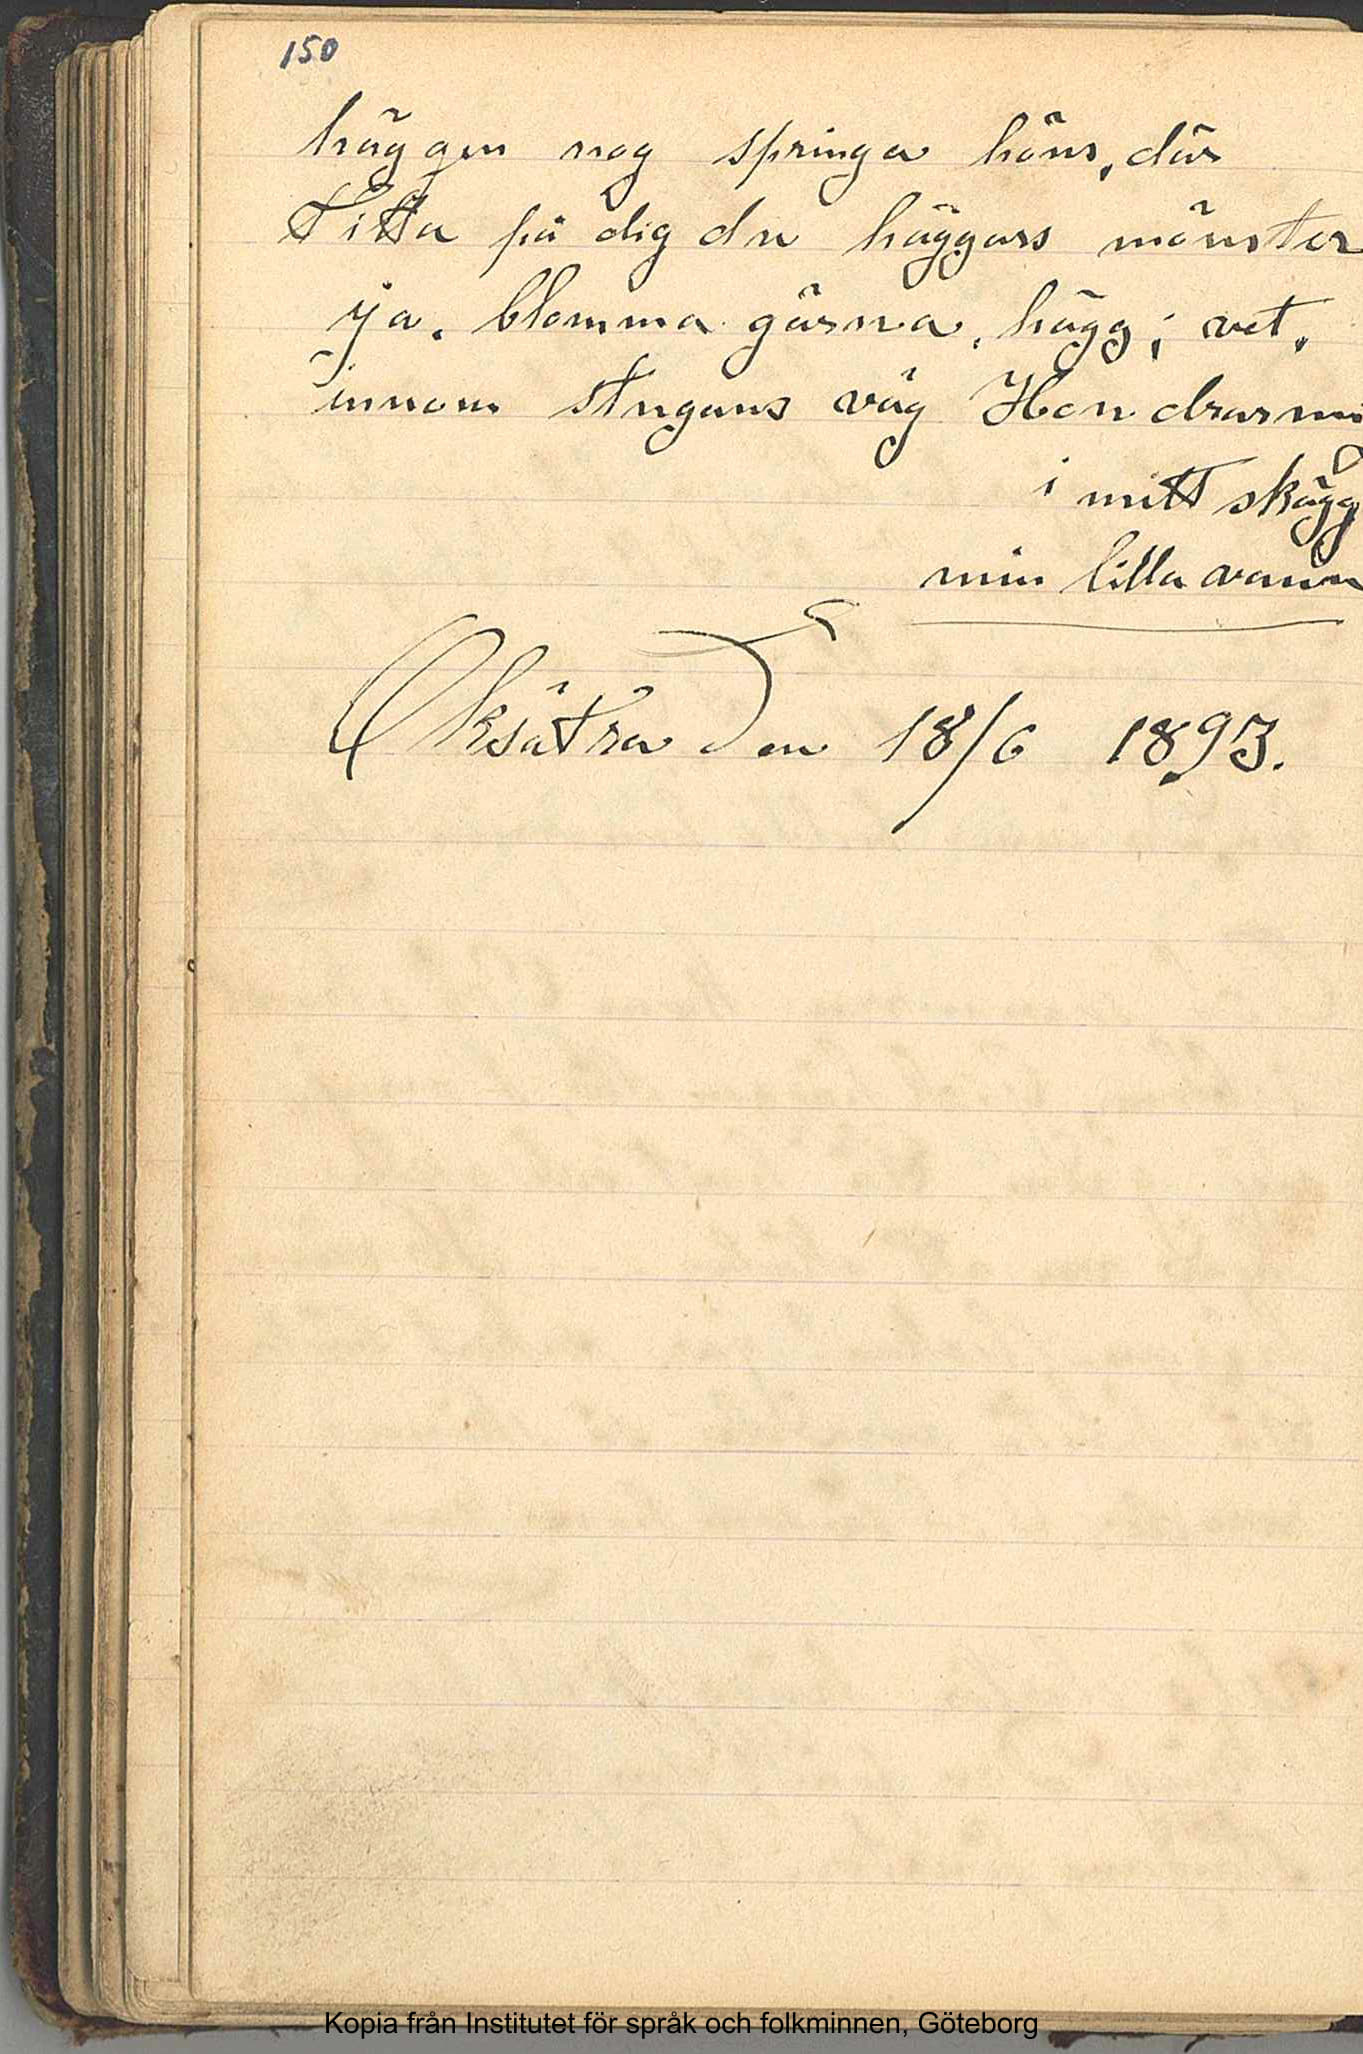 150
häggen nog springa höns, där
titta på dig du häggars mönster
ja. blomma gärna, hägg; vet,
innom stugans väg Hon drar mi
i mitt skägg
min lilla vänn
Oksätra Den 18/6 1893.
Kopia från Institutet för språk och folkminnen, Göteborg